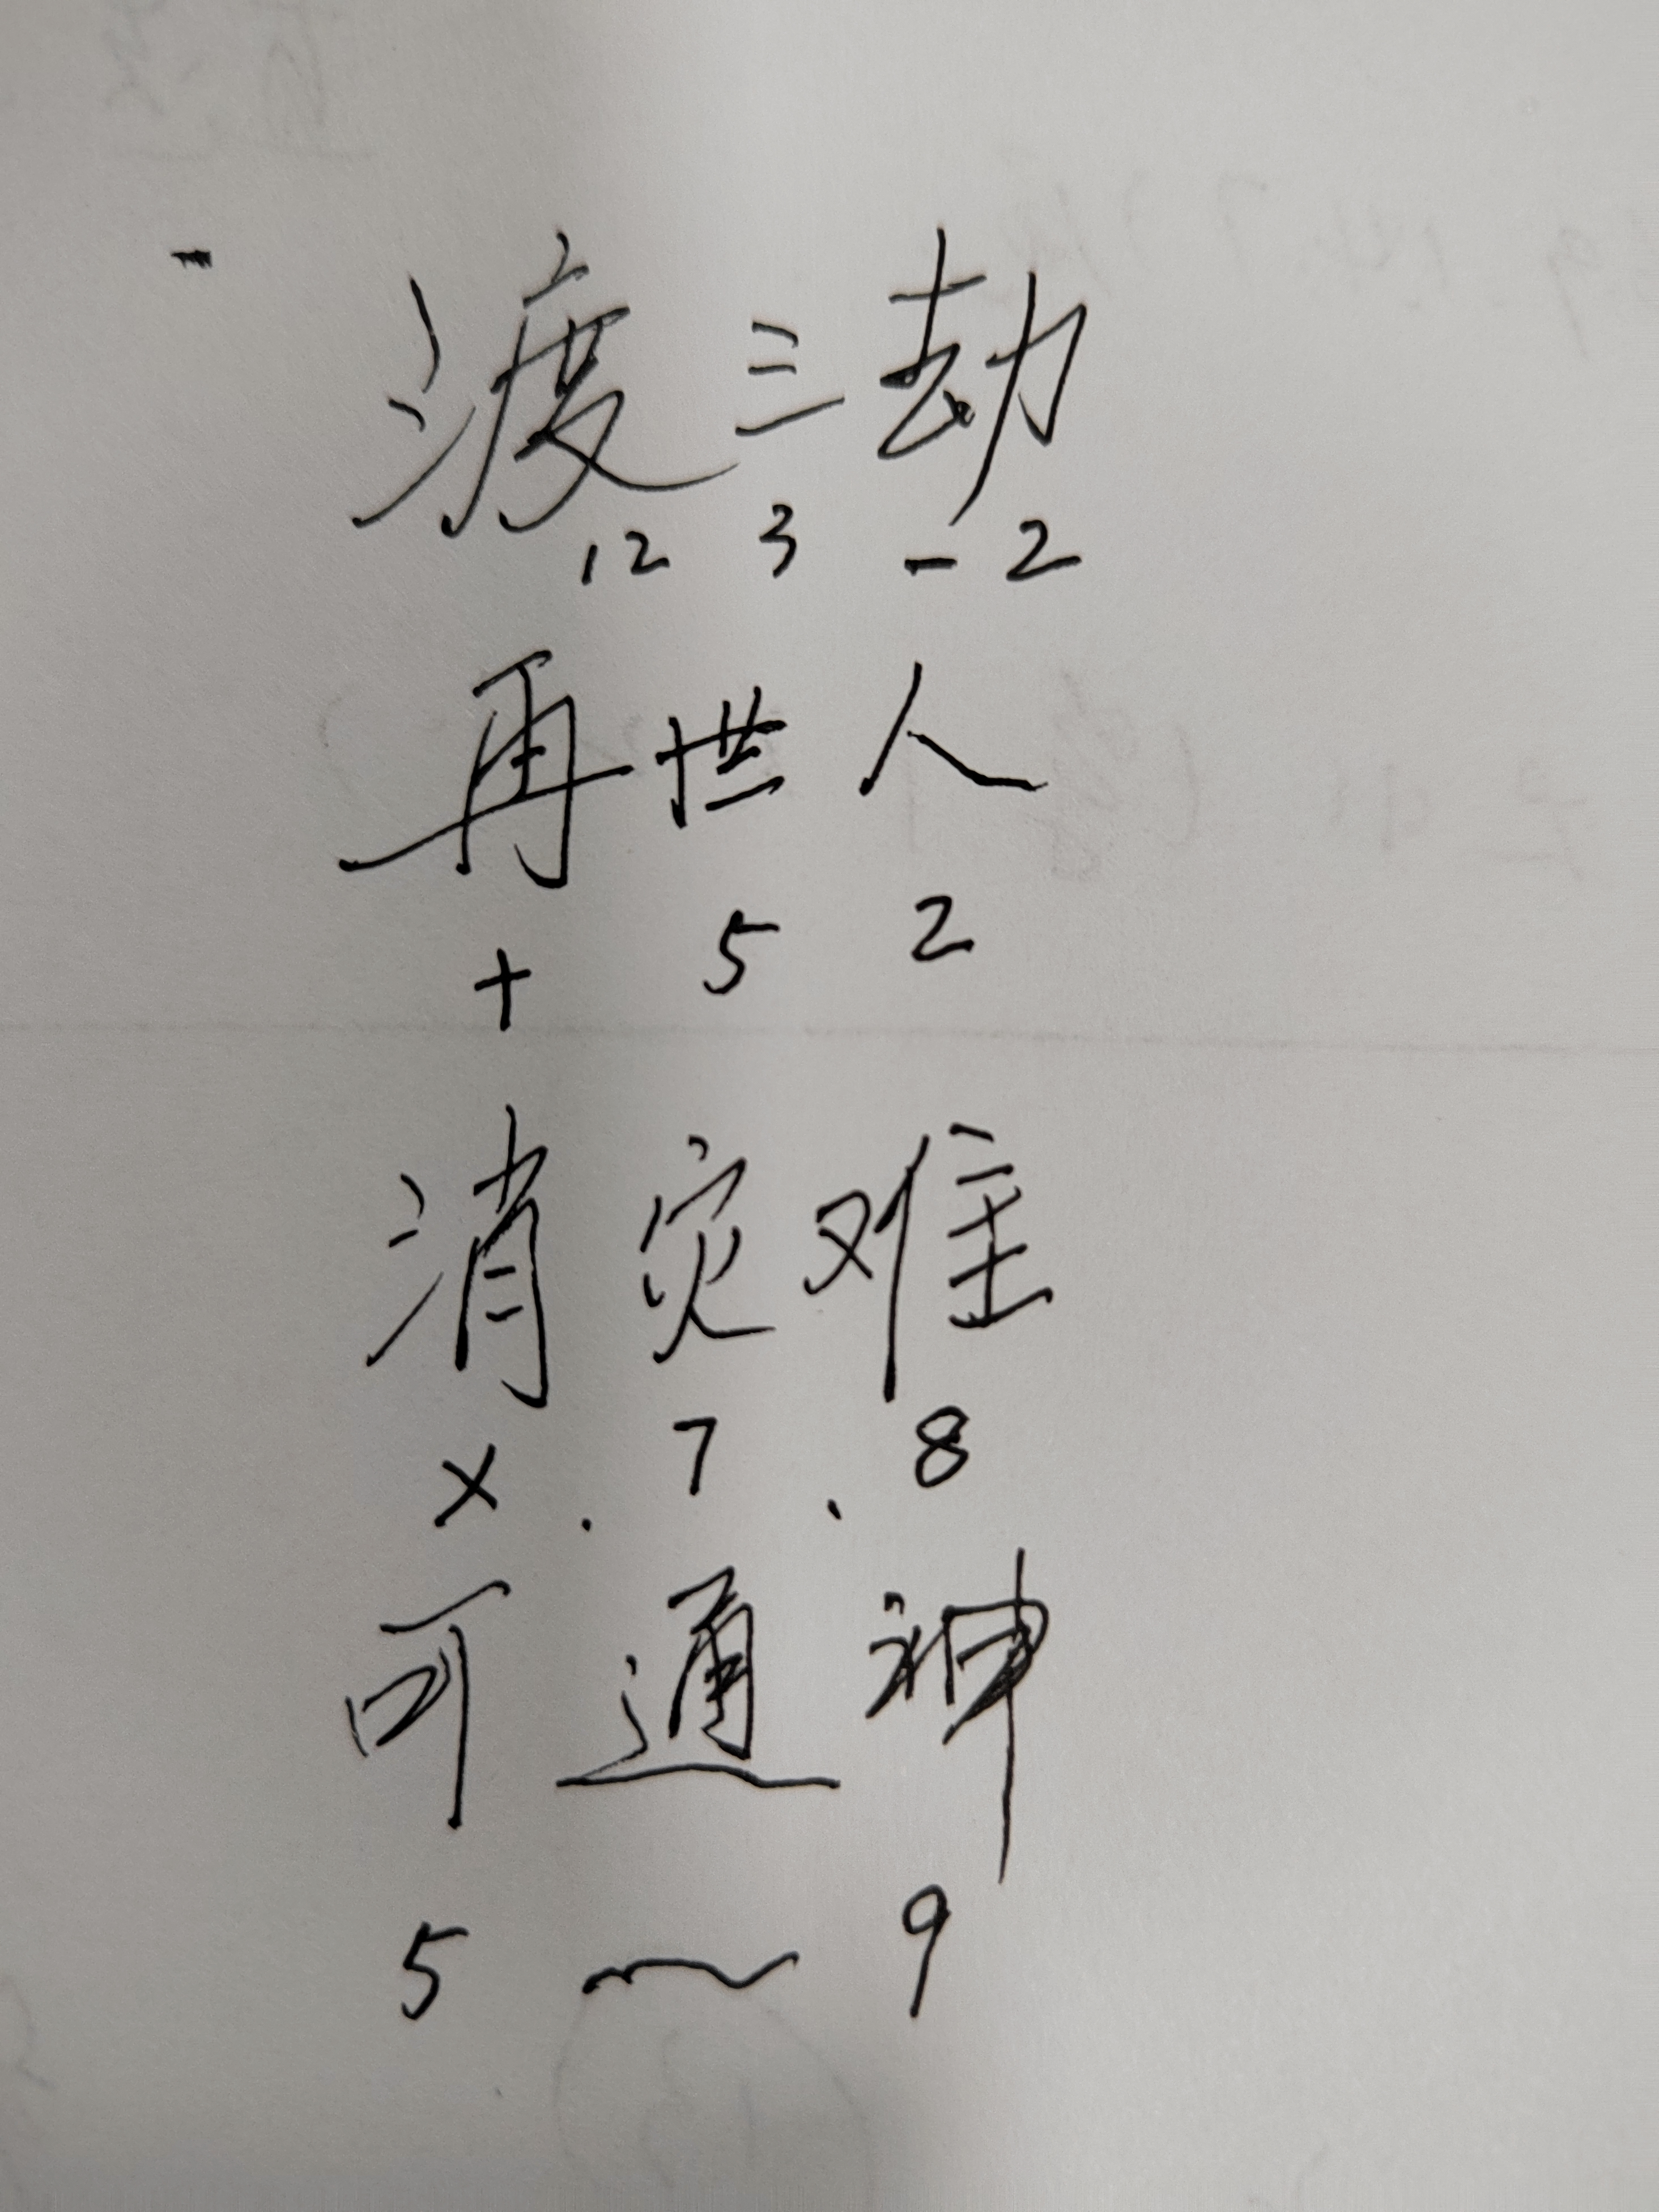 渡三劫
12 3 - 2
再世人
+ 5 2
消灾难
× . 7 . 8
可通神
5 ~ 9